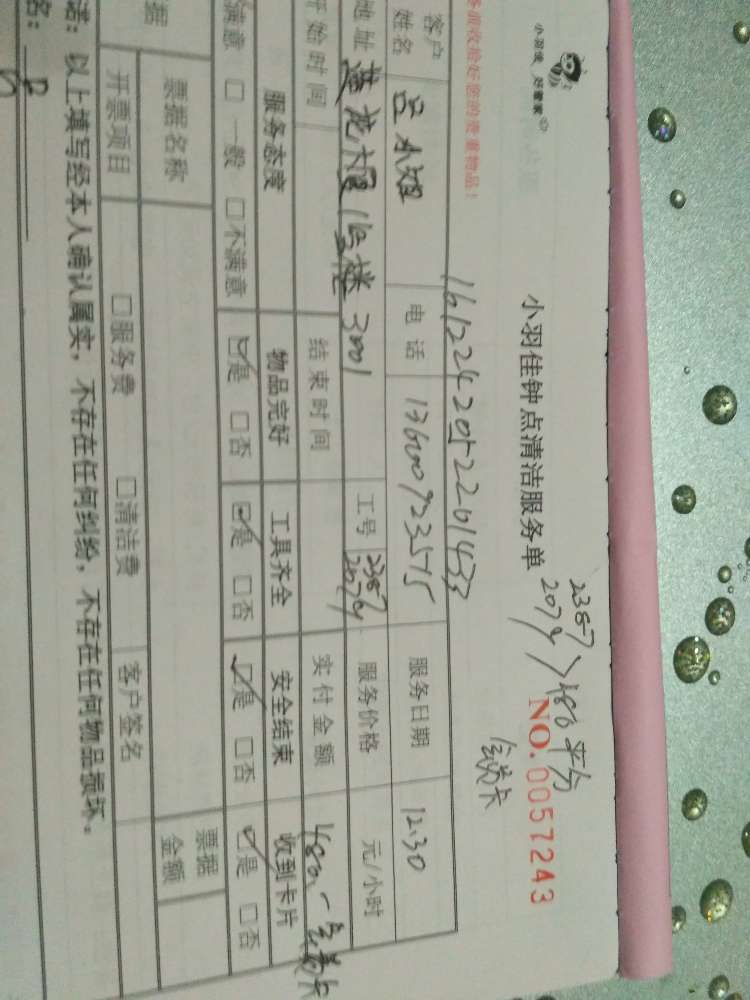 小羽佳 好管家
小羽佳钟点清洁服务单
2387
2079 480 平分
NO.0057243
会员卡
1612242052261433
收拾好您的贵重物品！
客户姓名 吕小姐 电话 13600923575 服务日期 12.30
地址 莲花大厦 楼3001 工号 2387 2079 服务价格 元/小时
开始时间 结束时间 实付金额 480.- 会员卡
服务态度 物品完好 工具齐全 安全结束 收到卡片
满意 □一般 □不满意 ☑是 □否 ☑是 □否 ☑是 □否 ☑是 □否
据 票据名称 票据金额
开票项目 □服务费 □清洁费 客户签名
诺：以上填写经本人确认属实，不存在任何纠纷，不存在任何物品损坏。
名：